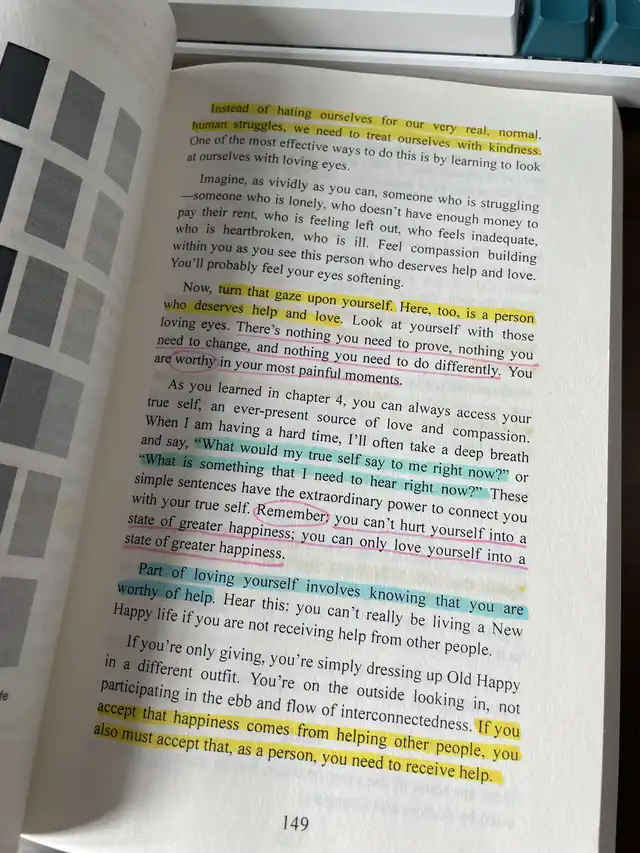 Instead of hating ourselves for our very real, normal,
human struggles, we need to treat ourselves with kindness.
One of the most effective ways to do this is by learning to look
at ourselves with loving eyes.
Imagine, as vividly as you can, someone who is struggling
—someone who is lonely, who doesn't have enough money to
pay their rent, who is feeling left out, who feels inadequate,
who is heartbroken, who is ill. Feel compassion building
within you as you see this person who deserves help and love.
You'll probably feel your eyes softening.
Now, turn that gaze upon yourself. Here, too, is a person
who deserves help and love. Look at yourself with those
loving eyes. There's nothing you need to prove, nothing you
need to change, and nothing you need to do differently. You
are worthy in your most painful moments.
As you learned in chapter 4, you can always access your
true self, an ever-present source of love and compassion.
When I am having a hard time, I'll often take a deep breath
and say, "What would my true self say to me right now?" or
"What is something that I need to hear right now?" These
simple sentences have the extraordinary power to connect you
with your true self. Remember: you can't hurt yourself into a
state of greater happiness; you can only love yourself into a
state of greater happiness.
Part of loving yourself involves knowing that you are
worthy of help. Hear this: you can't really be living a New
Happy life if you are not receiving help from other people.
If you're only giving, you're simply dressing up Old Happy
in a different outfit. You're on the outside looking in, not
participating in the ebb and flow of interconnectedness. If you
accept that happiness comes from helping other people, you
also must accept that, as a person, you need to receive help.
149